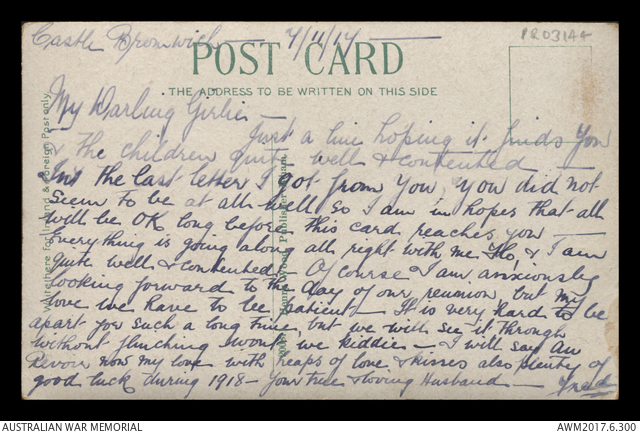 PRO3144
Castle Bromwich — 7/11/17
POST CARD
THE ADDRESS TO BE WRITTEN ON THIS SIDE
My Darling Girlie —
Just a line hoping it finds you
& the children quite well & contented —
In the last letter I got from you, you did not
seem to be at all well so I am in hopes that all
will be OK long before this card reaches you —
Everything is going along all right with me Flo, & I am
quite well & contented — Of course I am anxiously
looking forward to the day of our reunion, but my
love we have to be patient — It is very hard to be
apart for such a long time, but we will see it through
without flinching wont we kiddies — I will say Au
Revoir now my love with heaps of love & kisses also plenty of
good luck during 1918 — Your true & loving Husband — Fred
AUSTRALIAN WAR MEMORIAL
AWM2017.6.300